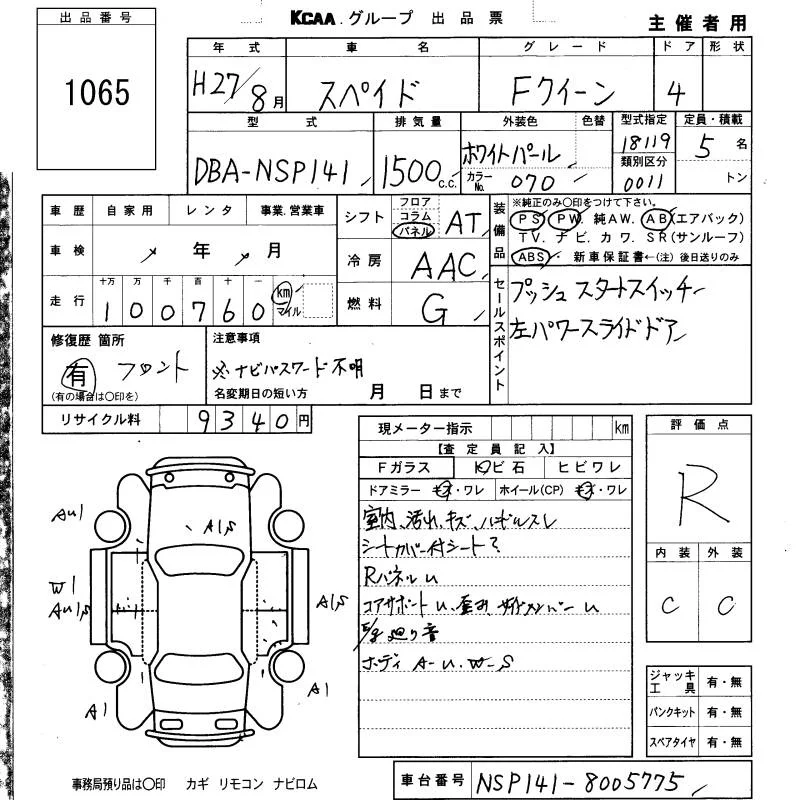 出品番号
1065
KCAA.グループ 出品票
主催者用
年式 車名 グレード ドア 形状
H27/8月 スペイド Fクイーン 4
型式 排気量 外装色 色替 型式指定 定員・積載
DBA-NSP141 1500 c.c. ホワイトパール 18119 5名
カラーNo. 070 類別区分 0011 トン
車歴 自家用 レンタ 事業.営業車
車検 年 月
走行 十万 万 千 百 十 一
100760 km マイル
シフト フロア コラム パネル AT
冷房 AAC
燃料 G
装備品 ※純正のみ〇印をつけて下さい。
PS PW 純AW. AB(エアバック)
TV. ナビ. カワ. SR(サンルーフ)
ABS 新車保証書←(注)後日送りのみ
セールスポイント
プッシュスタートスイッチ
左パワースライドドア
修復歴 箇所
有 フロント
(有の場合は〇印を)
注意事項
※ナビパスワード不明
名変期日の短い方 月 日まで
リサイクル料 9340円
現メーター指示 km
【査定員記入】
Fガラス トビ石 ヒビワレ
ドアミラー キズ・ワレ ホイール(CP) キズ・ワレ
室内、汚れ、キズ、ハガレスレ
シートカバー付シート?
Rパネルu
コアサポートu、歪み、サイドメンバーu
廻り音
ボディ A-u.W-S
評価点
R
内装 外装
C C
Au1
A1S
W1
Au1S
A1S
A1
A1
ジャッキ 工具 有・無
パンクキット 有・無
スペアタイヤ 有・無
事務局預り品は〇印 カギ リモコン ナビロム
車台番号 NSP141-8005775